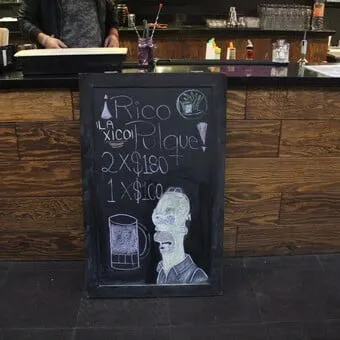 ¡Rico
¡LA XICO! Pulque!
2 X $180
1 X $100